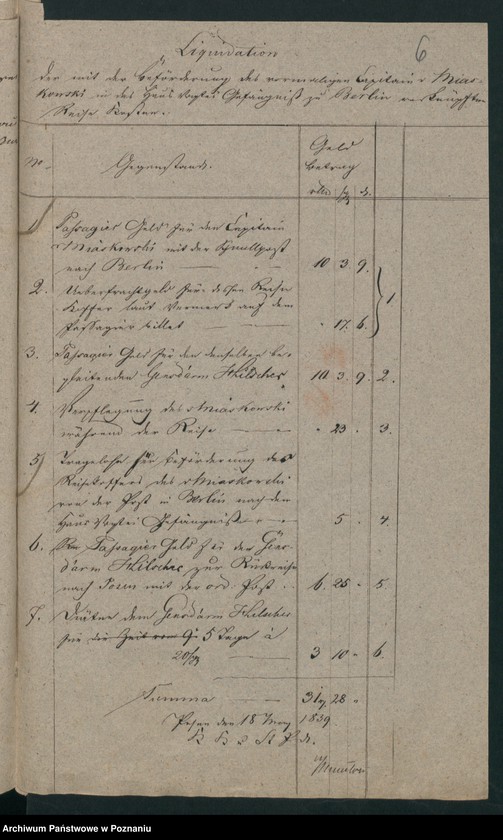 6
Liquidation
der mit der Beförderung des vormaligen Capitain v Mias-
kowski in das Haus Vogtei Gefängniß zu Berlin verknüpften
Reise Kosten.
No. Gegenstand. Geld betrag
rtlr sg d.
1. Passagier Geld für den Capitain
v Miaskowski mit der Schnellpost
nach Berlin 10 3 9.
2. Ueberfrachtgeld für dessen Reise
Koffer laut Vermerk auf dem
Passagier billet " 17. 6. 1
3. Passagier Geld für den denselben be-
gleitenden Gensdarm Hilscher 10 3 9. 2.
4. Verpflegung des v Miaskowski
während der Reise " 23 " 3.
5) Tragelohn für Beförderung des
Reisekoffers des v Miaskowski
von der Post in Berlin nach dem
Haus Vogtei Gefängniß 5 " 4.
6. Passagier Geld für den Gens-
darm Hilscher zur Rückreise
nach Posen mit der ord. Post 6. 25 " 5.
7. Diäten dem Gensdarm Hilscher
für die Zeit vom 5 Tage à
20 sg 3 10 " 6.
Summa 31 28 "
Posen den 18 May 1839
Archiwum Państwowe w Poznaniu
www.szukajwarchiwach.gov.pl